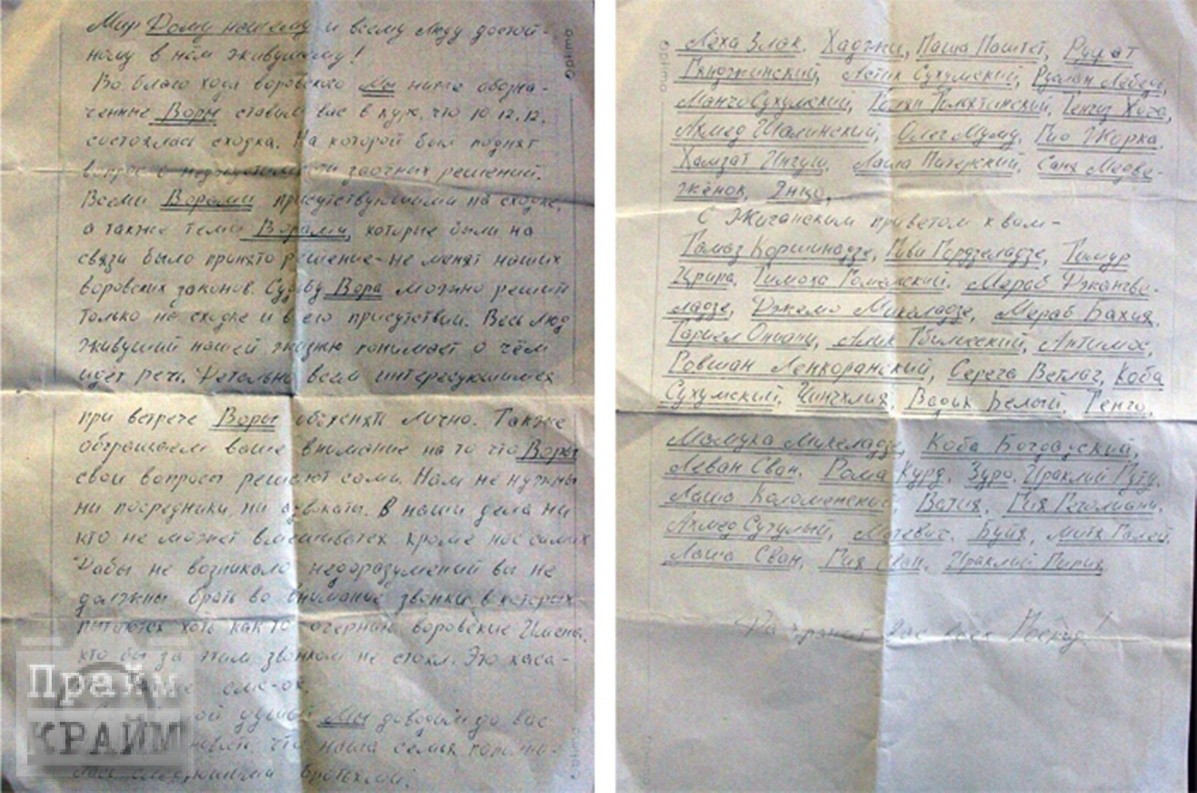 Мир Дому нашему и всему Люду достой-
ному в нём живущему!
Во благо хода воровского Мы ниже обозна-
ченные Воры ставим вас в курс, что 10.12.12.
состоялась сходка. На которой был поднят
вопрос о заочных решений.
Всеми Ворами присутствующими на сходке,
а также теми Ворами, которые были на
связи было принято решение-не менят наших
воровских законов. Судьбу Вора можно решит
только на сходке и в его присутствии. Весь люд
живущий нашей жизню понимает о чём
идёт речь. Детально всем интересующимся
при встрече Воры обьяснят лично. Также
обращаем ваше внимание на то что Воры
свои вопросы решают сами. Нам не нужны
ни посредники, ни адвокаты. В наши дела ни
кто не может вмешиватся кроме нас самих
Дабы не возникало недоразумений вы не
должны брать во внимание звонки в которых
пытаются хоть как то очернит воровские Имена,
кто бы за этим звонком не стоял. Это каса-
смс-ок.
душой Мы доводим до вас
что наша семья
следующими братьями:
Прайм
КРАЙМ
Лёха Злак, Хаджи, Паша Паштет, Руфат
Гянджинский, Астик Сухумский, Руслан Лебедь,
Манчо Сухумский, Тенгиз Хоба,
Ахмед Шалинский, Олег Муму, Гио Жорка,
Хамзат Ингуш, Лаша Питерский, Саня Медве-
жёнок, Янцо,
С Жиганским приветом к вам-
Тамаз Коршинадзе, Гиви Гердзеладзе, Тимур
Цирипа, Тимоха Гомельский, Мераб Джангве-
ладзе, Джемо Микеладзе, Мераб Бахия,
Тариел Ониани, Алик Тбилисский, Антимос,
Ровшан Ленкоранский, Серёга Ветлаг, Коба
Сухумский, Чинчхлия, Вадик Белый, Тенго,
Мамука Микеладзе, Коба Богдадский,
Леван Сван, Рома Курд, Зуро, Ираклий Путу,
Лаша Коломенский,
Ахмед Сутулый, Мацевич, Буйя, Митя Галей
Лаша Сван, Гия Сван, Ираклий Пипия
Да хранит вас всех Господ!